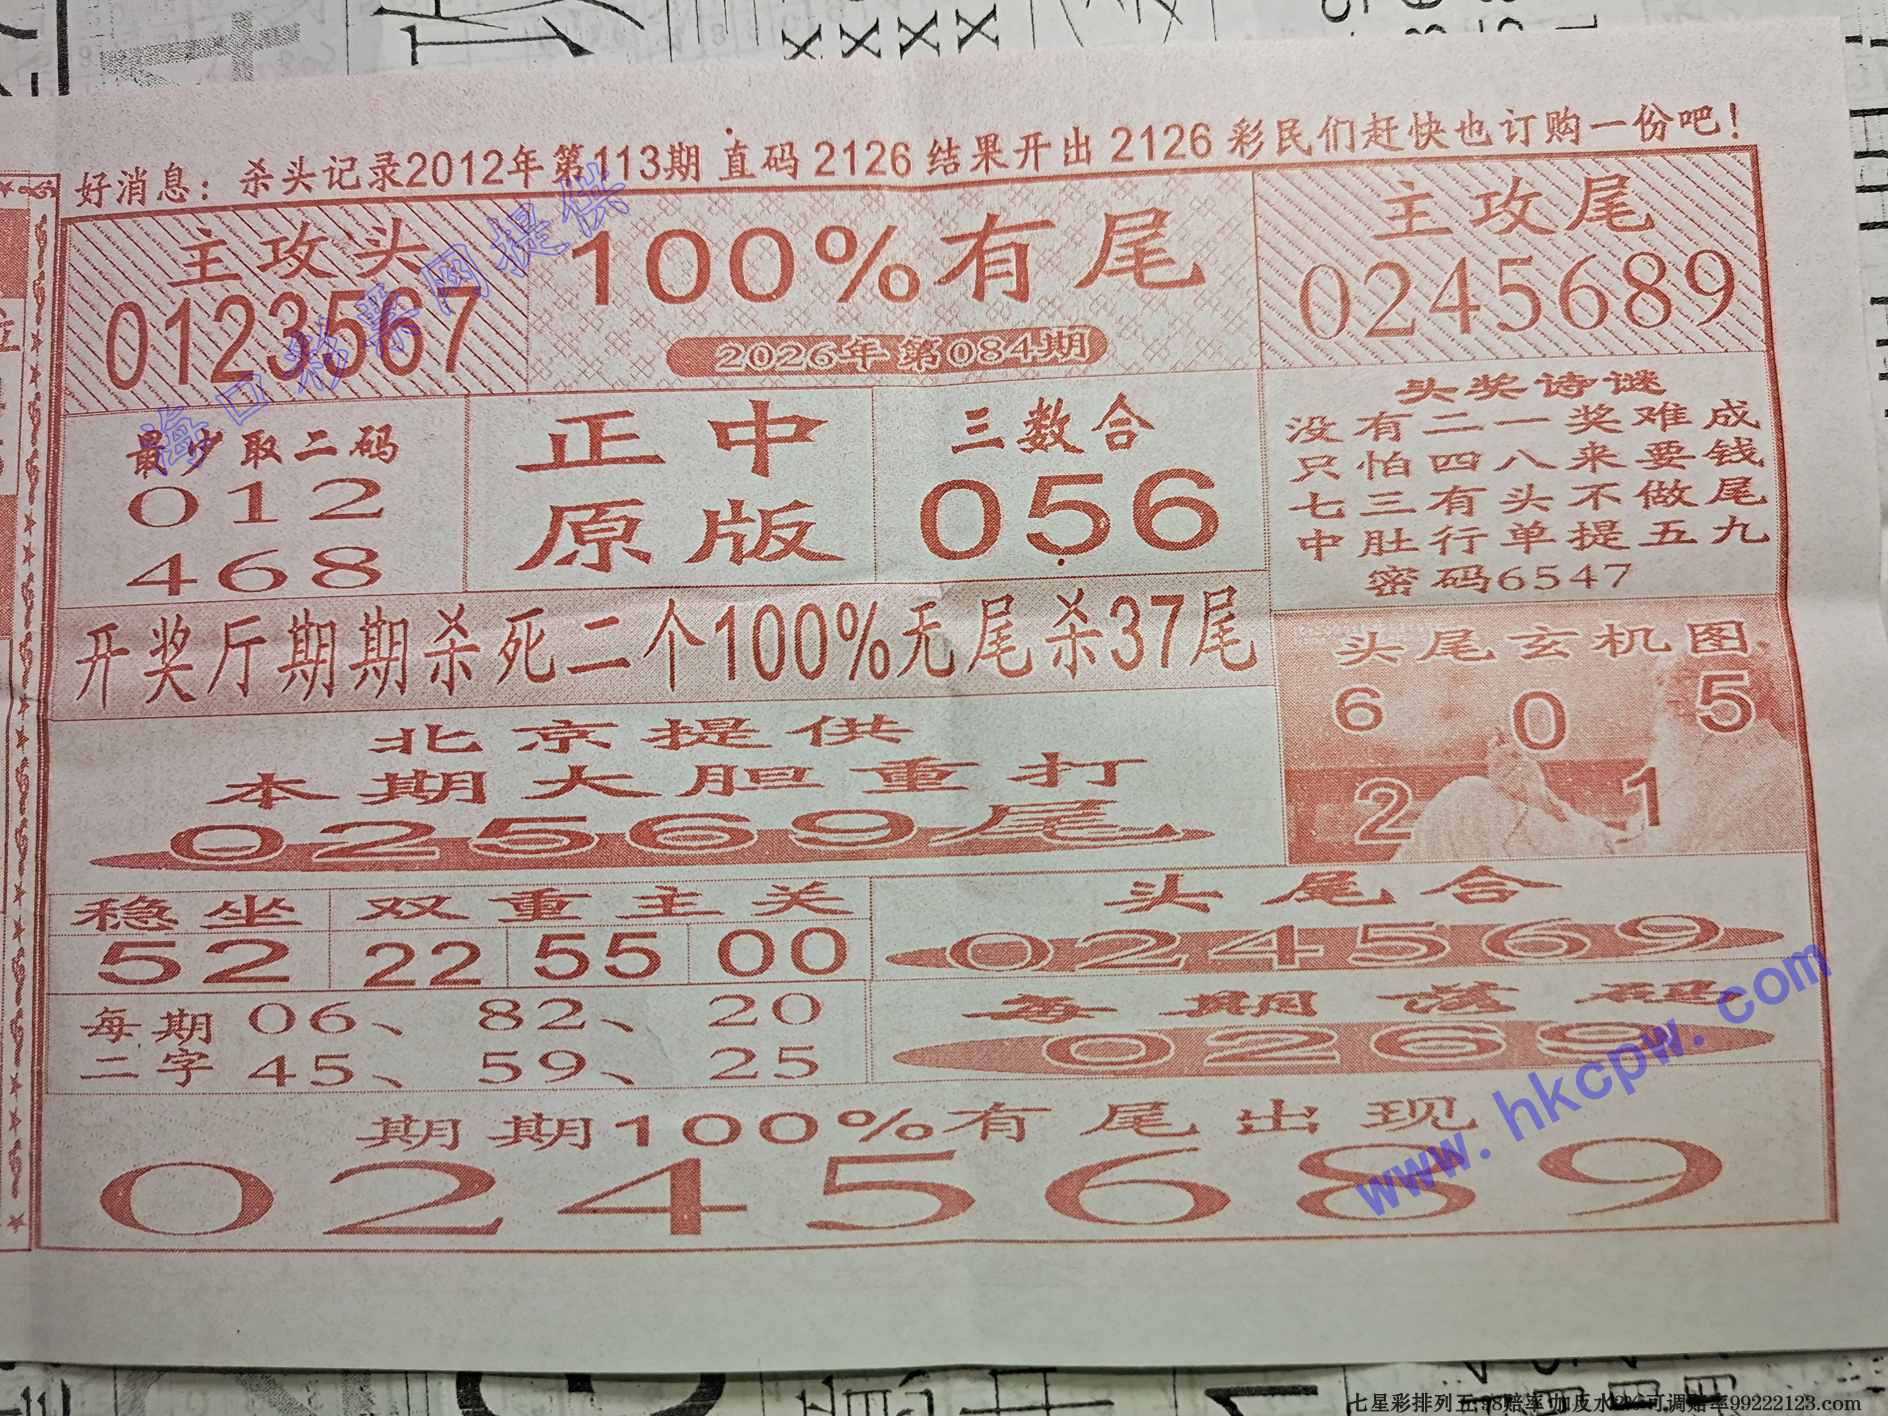 好消息：杀头记录2012年第113期 直码 2126 结果开出 2126 彩民们赶快也订购一份吧！
主攻头
0123567
100%有尾
2026年第084期
主攻尾
0245689
最少取二码
012
468
正中
原版
三数合
056
头奖诗谜
没有二一奖难成
只怕四八来要钱
七三有头不做尾
中肚行单提五九
密码6547
开奖厅期期杀死二个100%无尾杀37尾
头尾玄机图
6 0 5
2 1
北京提供
本期大胆重打
02569尾
稳坐
52
双重主关
22 55 00
头尾合
024569
每期
二字
06、 82、 20
45、 59、 25
每期送码
0269
期期100%有尾出现
0245689
海口彩票网提供
www.hkcpw.com